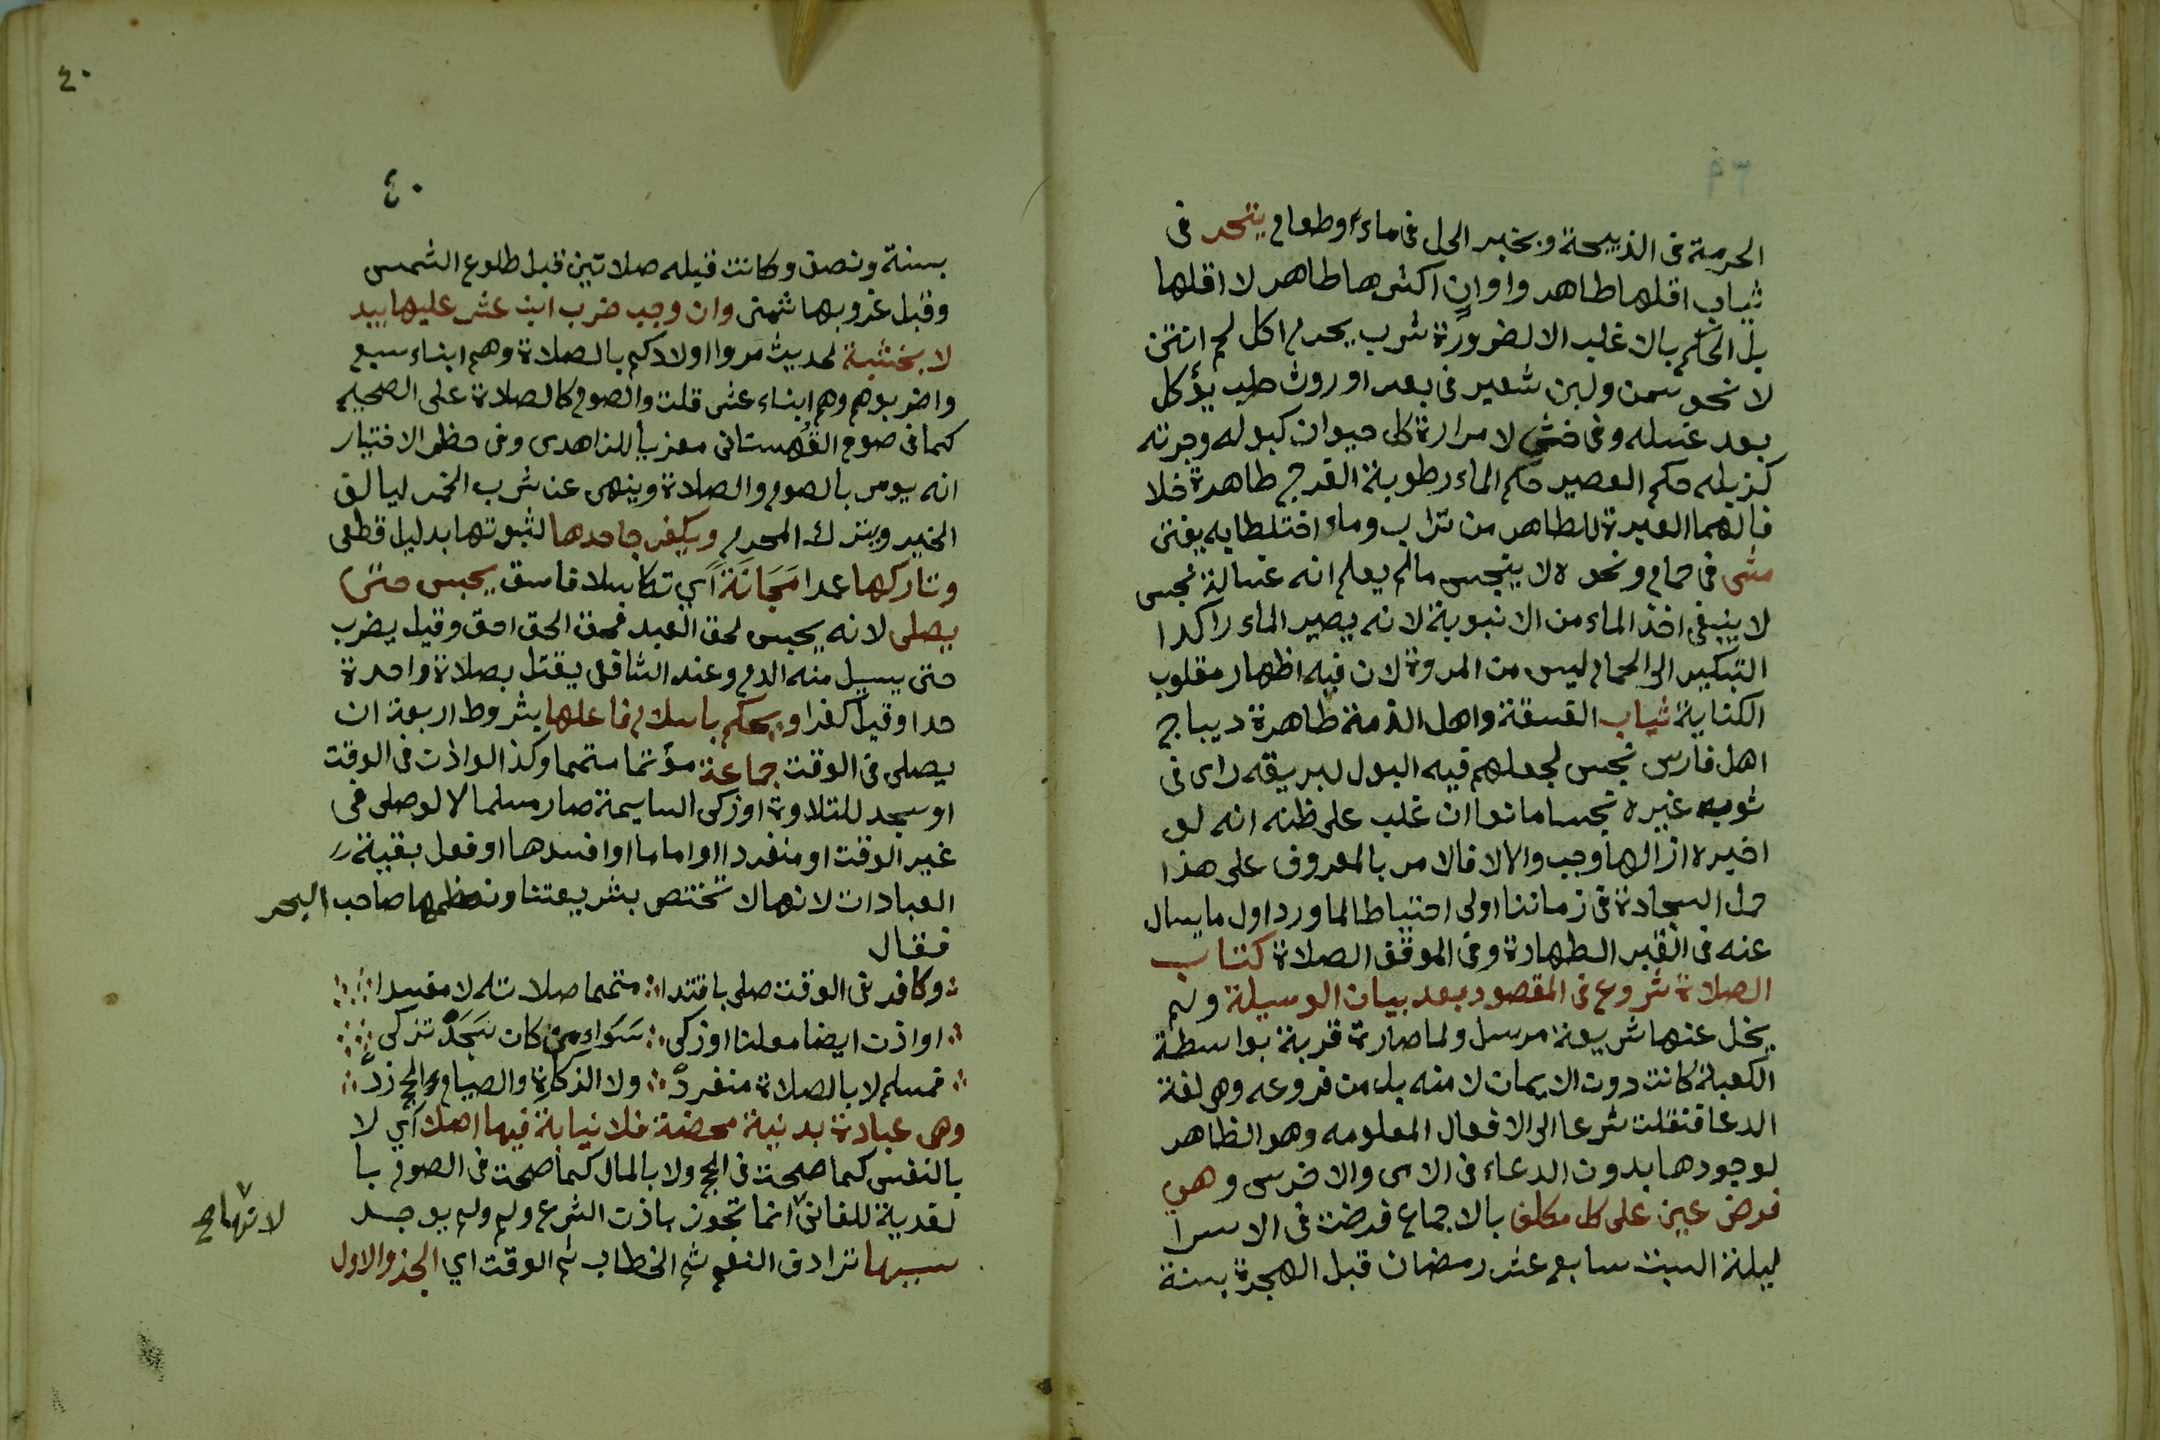 ٣٩
الحرمة فى الذبيحة وبخبر الحل فى ماء وطعام يتحر فى
ثياب اقلها طاهر واوان اكثرها طاهر لا اقلها
بل الحكم بالاغلب الا لضرورة شرب يحرم اكل لحم انتن
لا نحو سمن ولبن شعير فى بعر او روث صلب يؤكل
بعد غسله وفى خثى لا مرارة كل حيوان كبوله وجرته
كزبله حكم العصير حكم الماء رطوبة الفرج طاهرة خلا
فا لهما العبرة للطاهر من تراب وماء اختلطا به يفتى
مشى فى حمام ونحوه لا ينجس مالم يعلم انه غسالة نجس
لا ينبغى اخذ الماء من الانبوبة لانه يصير الماء راكدا
التبكير الى الحمام ليس من المروة لان فيه اظهار مقلوب
الكناية ثياب الفسقة واهل الذمة طاهرة ديباج
اهل فارس نجس لجعلهم فيه البول لبريقه راى فى
ثوب غيره نجسا مانعا ان غلب على ظنه انه لو
اخبره ازالها وجب والا لا فالامر بالمعروف على هذا
حمل السجادة فى زماننا اولى احتياطا لما ورد اول ما يسال
عنه فى القبر الطهارة وفى الموقف الصلاة كتاب
الصلاة شروع فى المقصود بعد بيان الوسيلة ولم
يخل عنها شريعة مرسل ولما صارة قربة بواسطة
الكعبة كانت دون الايمان لا منه بل من فروعه وهى لغة
الدعا فنقلت شرعا الى الافعال المعلومه وهو الظاهر
لوجودها بدون الدعاء فى الامى والاخرس وهي
فرض عين على كل مكلف بالاجماع فرضت فى الاسرا
ليلة السبت سابع عشر رمضان قبل الهجرة بسنة
٤٠
٤٠
بسنة ونصف وكانت قبله صلاتين قبل طلوع الشمس
وقبل غروبها شمنى وان وجب ضرب ابن عشر عليها بيد
لا بخشبة لحديث مروا اولادكم بالصلاة وهم ابناء سبع
واضربوهم وهم ابناء عشر قلت والصوم كالصلاة على الصحيح
كما فى صوم القهستانى معزيا للزاهدى وفى حظر الاختيار
انه يومر بالصوم والصلاة وينهى عن شرب الخمر ليالف
الخير ويترك المحرم ويكفر جاحدها لثبوتها بدليل قطعى
وتاركها عمدا مجانة اي تكاسلا فاسق يحبس حتى
يصلى لانه يحبس لحق العبد فحق الحق احق وقيل يضرب
حتى يسيل منه الدم وعند الشافعى يقتل بصلاة واحدة
حدا وقيل كفرا ويحكم باسلام فاعلها بشروط اربعة ان
يصلى فى الوقت جماعة مؤتما متمما وكذا لو اذن فى الوقت
او سجد للتلاوة او زكى السايمة صار مسلما لا لو صلى فى
غير الوقت او منفردا او اماما او افسدها او فعل بقية
العبادات لانها لا تختص بشريعتنا ونظمها صاحب البحر
فقال
وكافر فى الوقت صلى باقتدا متمما صلاته لا مفسدا
او اذن ايضا معلنا او زكى سوائم من كان سجد تزكى
فمسلم لا بالصلاة منفرد ولا الزكاة والصيام والحج زد
وهى عبادة بدنية محضة فلا نيابة فيها اصلا اي لا
بالنفس كما صحت فى الحج ولا بالمال كما صحت فى الصوم با
لفدية للفانى انما تجوز باذن الشرع ولم ولم يوجد
لانها صح
سببها ترادف النعم ثم الخطاب ثم الوقت اي الجزو الاول